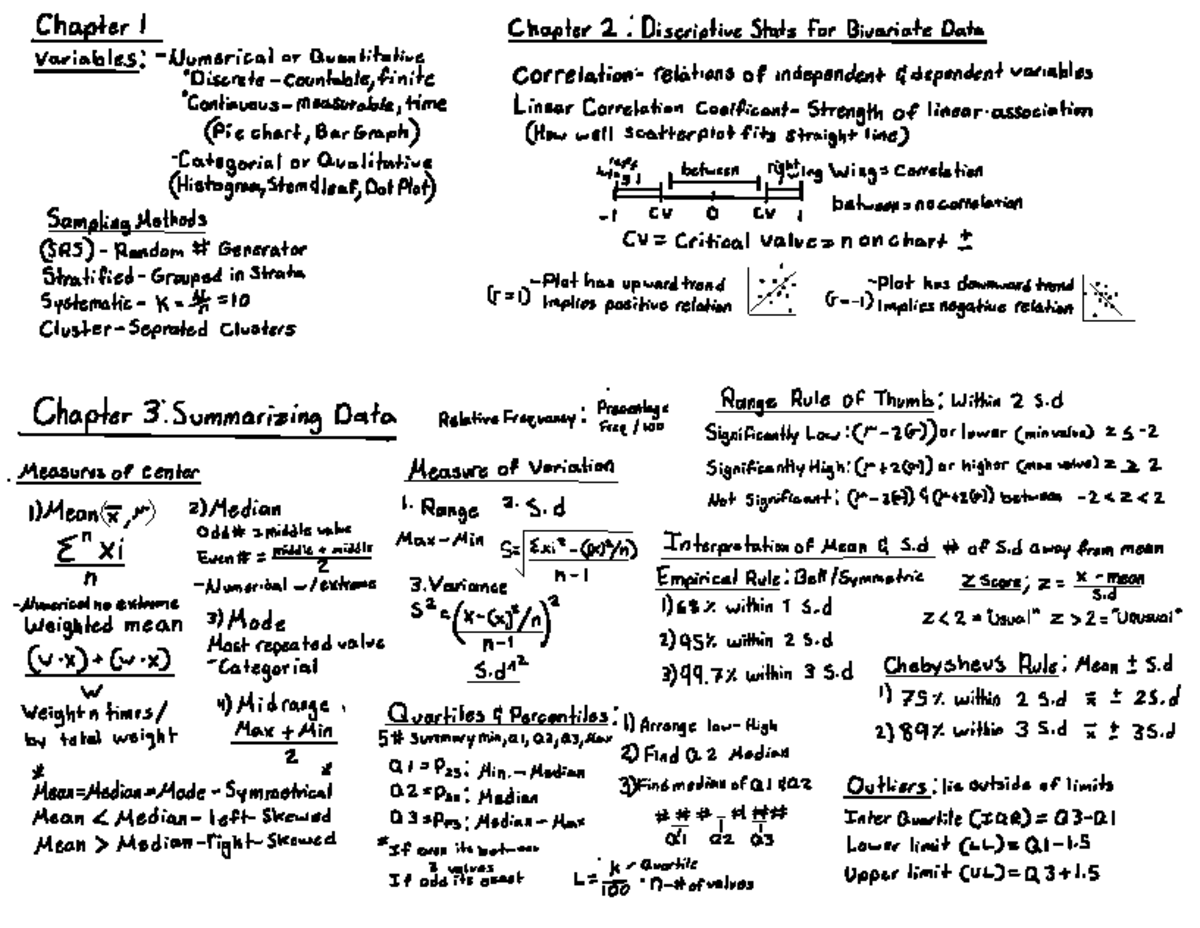 Chapter 1
Variables: -Numerical or Quantitative
*Discrete - Countable, finite
*Continuous - measurable, time
(Pie chart, Bar Graph)
-Categorial or Qualitative
(Histogram, Stem&leaf, Dot Plot)
Sampling Methods
(SRS) - Random # Generator
Stratified - Grouped in Strata
Systematic - K = N/n = 10
Cluster - Seprated Clusters
Chapter 2: Discriptive Stats For Bivariate Data
Correlation - relations of independent & dependent variables
Linear Correlation Coeficant - Strength of linear-association
(How well scatterplot fits straight line)
between right wing Wing = Correlation
-1 CV 0 CV 1 between = no correlation
CV = Critical Value = n on chart ±
(r=1) -Plot has upward trend
Implies positive relation
(r=-1) -Plot has downward trend
Implies negative relation
Chapter 3: Summarizing Data
Relative Frequency: Precentage
Freq / 100
Measures of Center
1) Mean (x̄, μ)
Σ^n xi
n
-Numerical no extreme
Weighted mean
(w·x) + (w·x)
w
Weight n times /
by total weight
2) Median
Odd # = middle value
Even # = middle + middle
2
-Numerical w/ extreme
3) Mode
Most repeated value
-Categorial
4) Midrange
Max + Min
2
* *
Mean=Median=Mode - Symmetrical
Mean < Median - left-Skewed
Mean > Median - right-Skewed
Measure of Variation
1. Range 2. S.d
Max - Min S = √ Σxi² - (Σx)²/n)
n-1
3. Variance
S² = (x-(x)²/n)²
n-1
S.d^2
Quartiles & Percentiles:
5# Summary min, Q1, Q2, Q3, Max
Q1 = P25: Min. - Median
Q2 = P50: Median
Q3 = P75: Median - Max
*If even its between
2 values
If odd its exact
1) Arrange low-High
2) Find Q2 Median
3) Find median of Q1 & Q2
# # # - # # #
Q1 Q2 Q3
L = k - Quartile
100 · n - # of values
Range Rule of Thumb: Within 2 S.d
Significantly Low: (μ - 2(σ)) or lower (min value) z ≤ -2
Significantly High: (μ + 2(σ)) or higher (max value) z ≥ 2
Not Significant: (μ - 2(σ)) & (μ + 2(σ)) between -2 < z < 2
Interpretation of Mean & S.d # of S.d away from mean
Empirical Rule: Bell/Symmetric
1) 68% within 1 S.d
2) 95% within 2 S.d
3) 99.7% within 3 S.d
Z Score; Z = x - mean
S.d
Z < 2 = "Usual" Z > 2 = "Unusual"
Chebyshevs Rule: Mean ± S.d
1) 75% within 2 S.d x̄ ± 2S.d
2) 89% within 3 S.d x̄ ± 3S.d
Outliers: lie outside of limits
Inter Quartile (IQR) = Q3-Q1
Lower limit (LL) = Q1-1.5
Upper limit (UL) = Q3+1.5